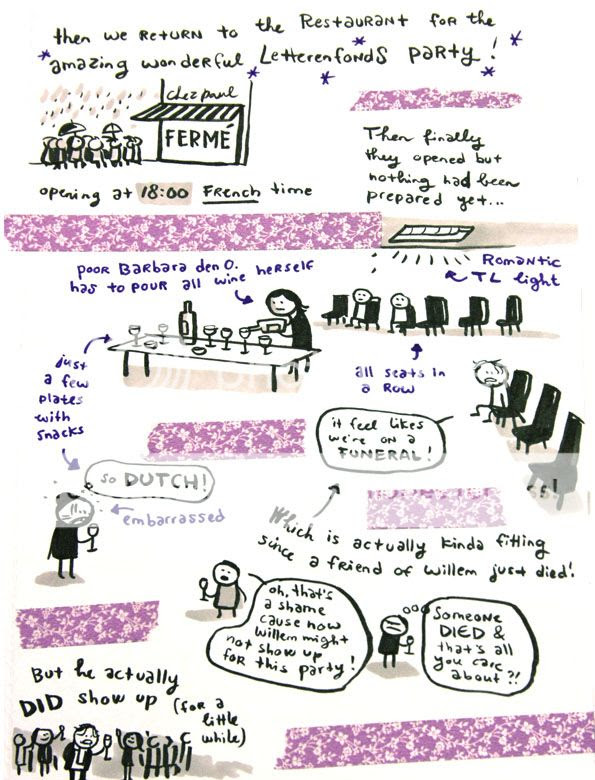 then we RETURN to the RESTAURANT for the
amazing wonderful Letterenfonds party!
chez paul
FERMÉ
opening at 18:00 French time
Then finally
they opened but
nothing had been
prepared yet...
Romantic
TL light
poor Barbara den O.
has to pour all wine herself
all seats in
a Row
just
a few
plates
with
snacks
it feel likes
we're on a
FUNERAL!
so DUTCH!
embarrassed
Which is actually kinda fitting
since a friend of Willem just died!
oh, that's
a shame
cause now
Willem might
not show up
for this party!
Someone
DIED &
that's all
you care
about?!
But he actually
DID show up (for a
little
while)